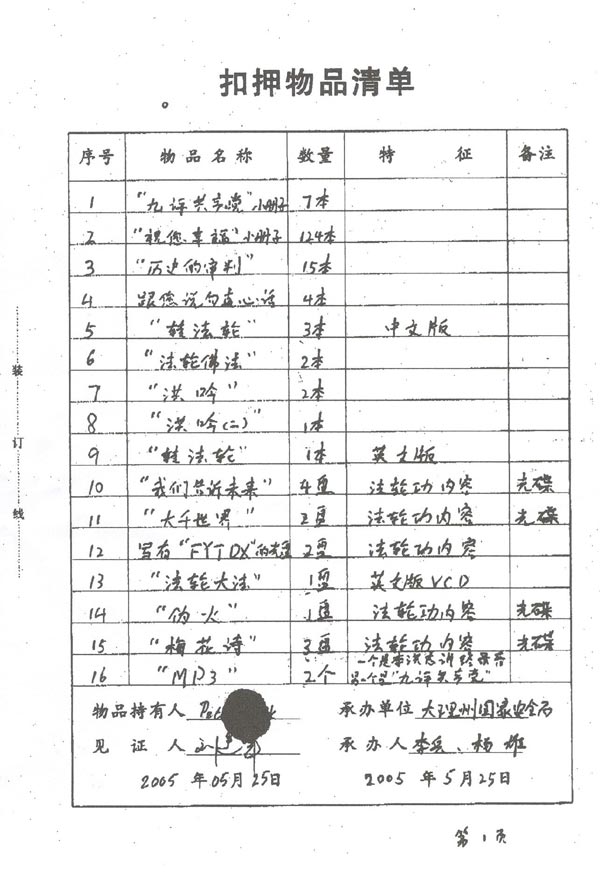 扣押物品清单
序号 物品名称 数量 特征 备注
1 “九评共产党”小册子 7本
2 “祝您幸福”小册子 124本
3 “历史的审判” 15本
4 跟您说句真心话 4本
5 “转法轮” 3本 中文版
6 “法轮佛法” 2本
7 “洪吟” 2本
8 “洪吟(二)” 1本
9 “转法轮” 1本 英文版
10 “我们告诉未来” 4盘 法轮功内容 光碟
11 “大千世界” 2盘 法轮功内容 光碟
12 写有“FYTDX”的光盘 2盘 法轮功内容
13 “法轮大法” 1盘 英文版VCD
14 “伪火” 1盘 法轮功内容 光碟
15 “梅花诗” 3盘 法轮功内容 光碟
16 “MP3” 2个 一个是李洪志讲 另一个是“九评共产党”
物品持有人 承办单位 大理州国家安全局
见证人 承办人 李 、杨雄
2005年05月25日 2005年5月25日
第1页
装订线